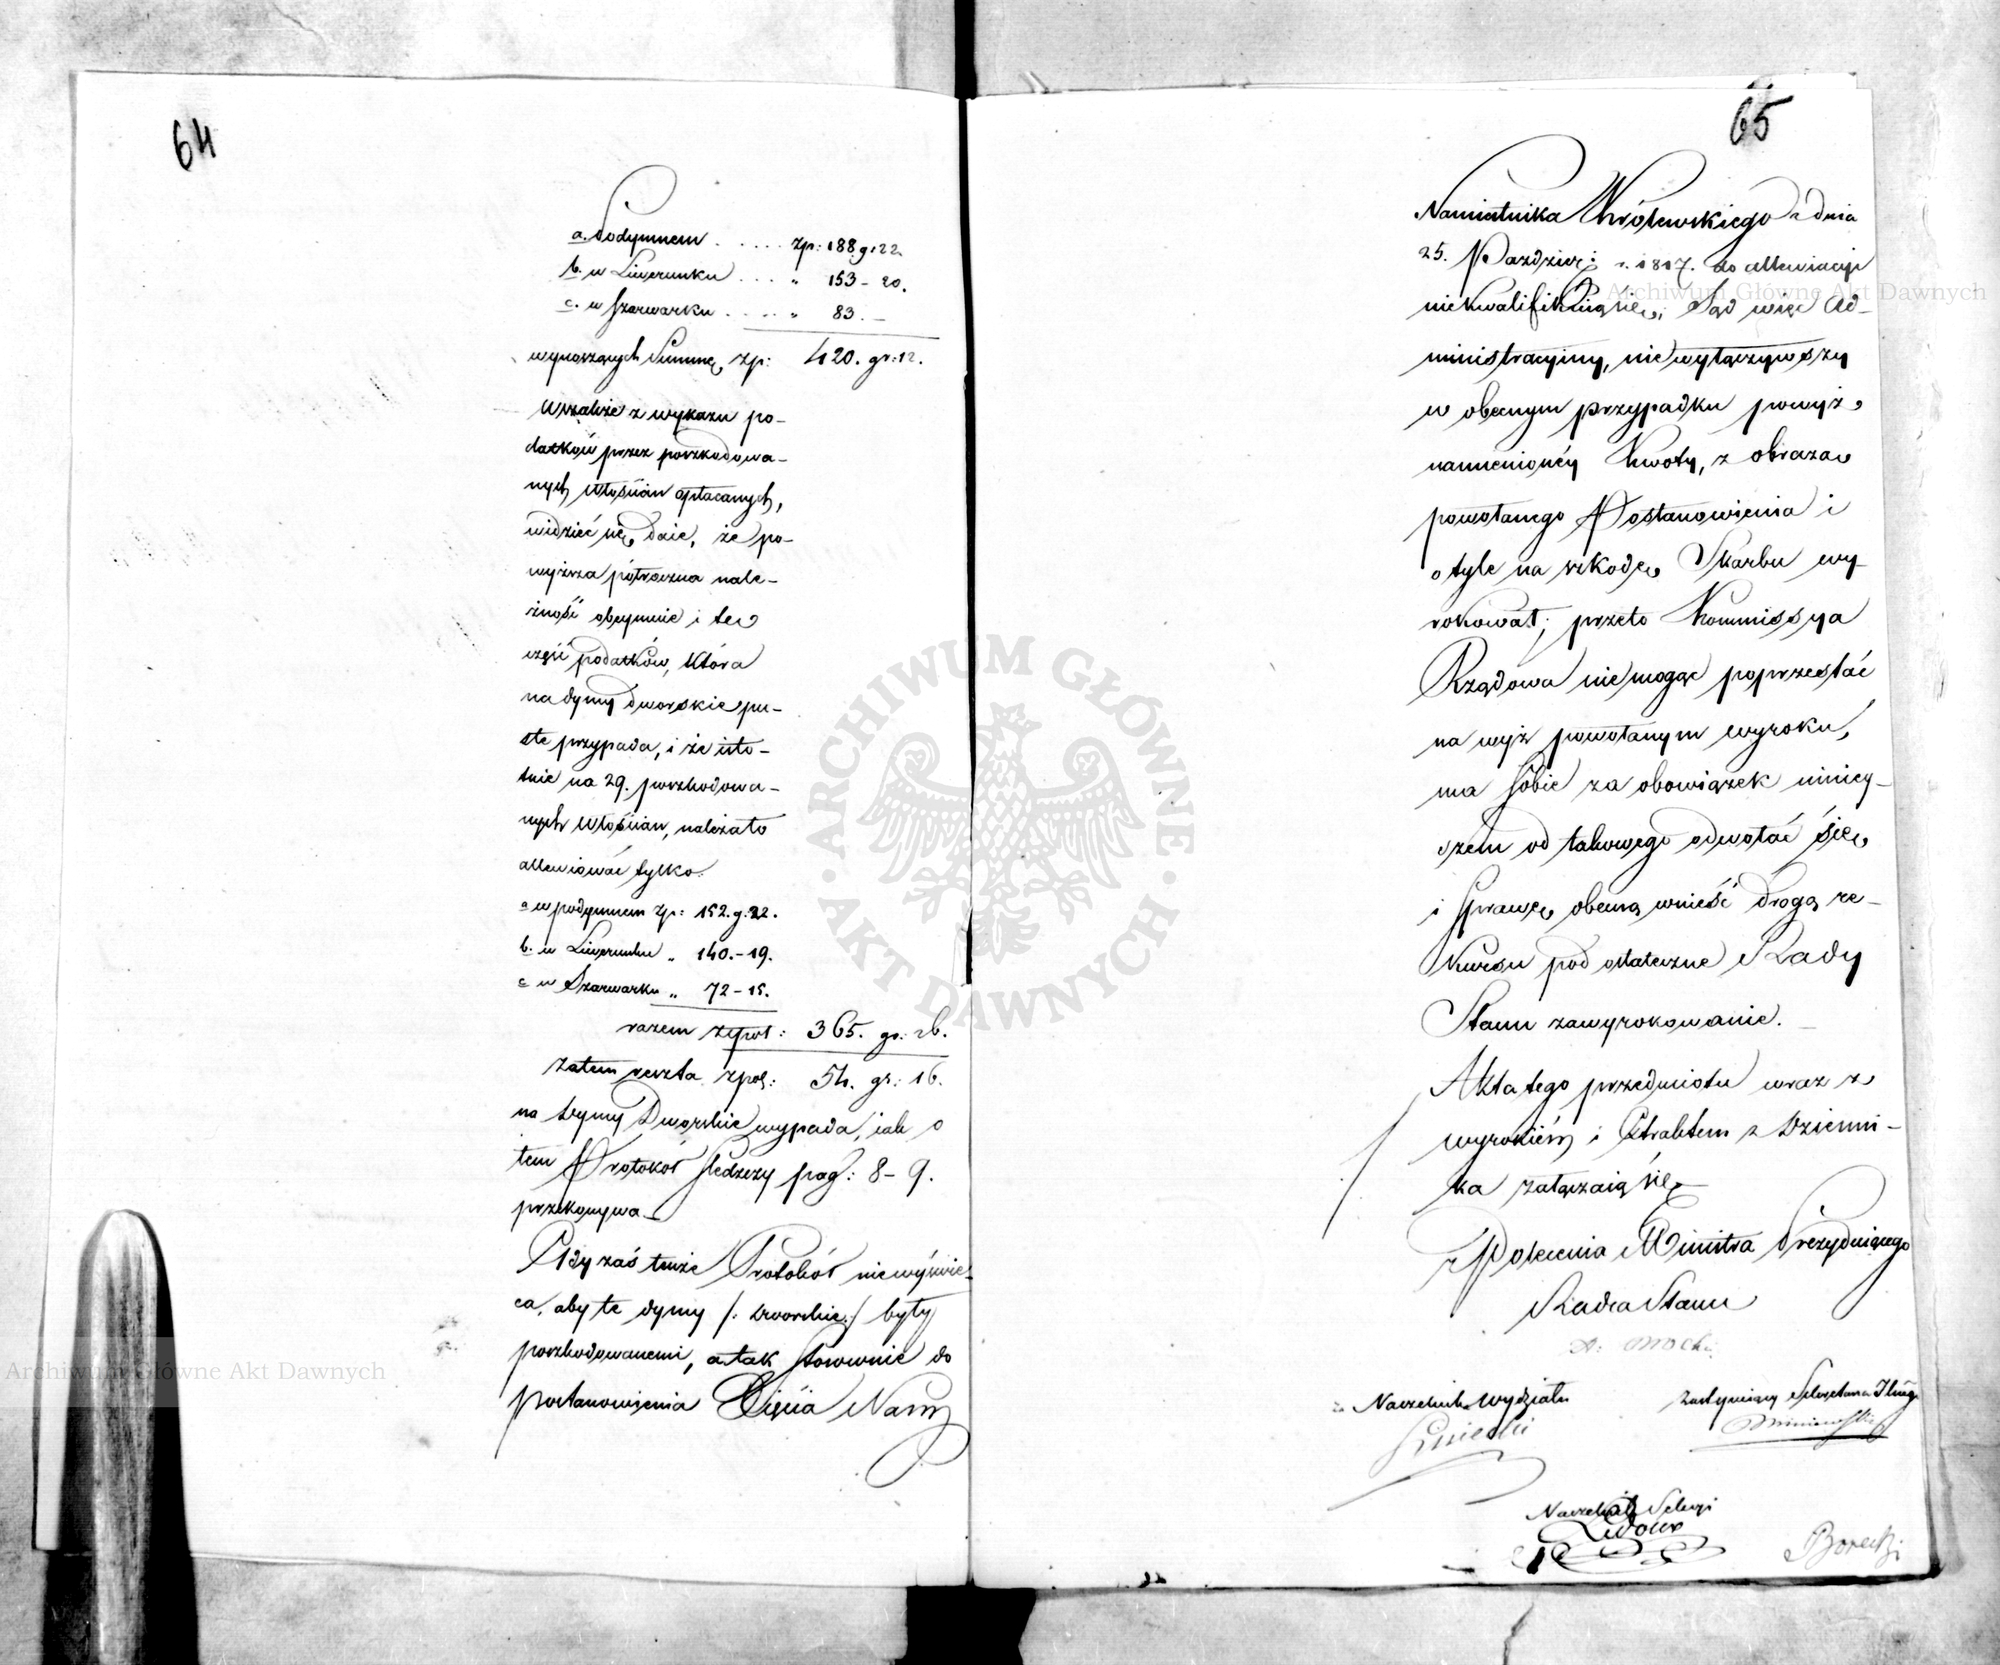 64
a. Podymnem . . . . . Zp: 188. g: 22.
b. w Liwerunku . . . . „ 153 – 20.
c. w Szarwarku . . . . . „ 83. –
wynoszących Summę, zp: 420. gr: 12.
Wszakże z wykazu po-
datków przez poszkodowa-
nych Włościan opłacanych,
widzieć się daie, że po-
wyższa półroczna nale-
żność obeymuie i tę
część podatków, która
na dymy dworskie pu-
ste przypada, i że isto-
tnie na 29. poszkodowa-
nych Włościan, należało
allewiować tylko:
a w podymnem Zp: 152. g. 22.
b. w Liwerunku „ 140. – 19.
c w Szarwarku „ 72 – 15.
razem złpol: 365. gr: 26.
Zatem reszta zpol: 54. gr: 16.
na dymy Dworskie wypada, iak o
tem Protokół śledczy pag: 8 – 9.
przekonywa. –
Gdy zaś tenże Protokół niewyświe-
ca, aby te dymy /: dworskie :/ były
poszkodowanemi, a tak stosownie do
postanowienia Xięcia Nam
65
Namiestnika Królewskiego z dnia
25. Paździer: r. 1817. do allewiacyi
niekwalifikuią się; Sąd więc Ad-
ministracyiny, niewyłączywszy
w obecnym przypadku powyż
namienioney kwoty, z obrazą
powołanego Postanowienia i
o tyle na szkodę Skarbu wy-
rokował; przeto Kommissya
Rządowa niemogąc poprzestać
na wyż powołanym wyroku,
ma sobie za obowiązek niniey-
szem od takowego odwołać się
i sprawę obecną wnieść drogą re-
kursu pod ostateczne Rady
Stanu zawyrokowanie. –
Akta tego przedmiotu wraz z
wyrokiem i Extraktem z Dzienni-
ka załączaią się
z Polecenia Ministra Prezyduiącego
Radca Stanu
Naczelnik Wydziału
Zastępuiący Sekretarza Jlnego
Naczelnik Sekcyi
Archiwum Główne Akt Dawnych
Archiwum Główne Akt Dawnych
ARCHIWUM GŁÓWNE · AKT DAWNYCH ·